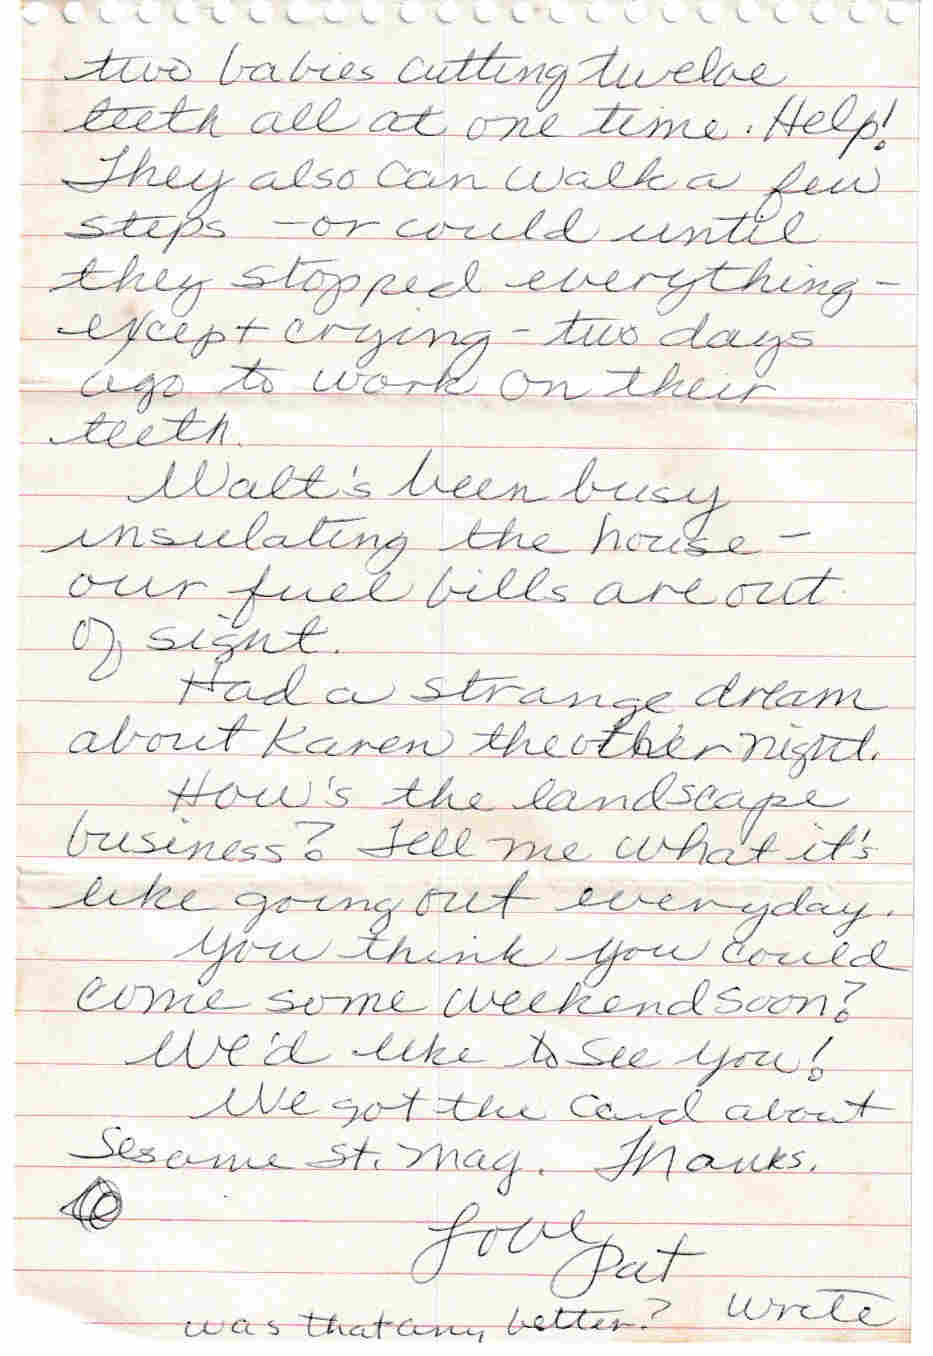 two babies cutting twelve
teeth all at one time. Help!
They also can walk a few
steps - or could until
they stopped everything -
except crying - two days
ago to work on their
teeth.
Walt's been busy
insulating the house -
our fuel bills are out
of sight.
Had a strange dream
about Karen the other night.
How's the landscape
business? Tell me what it's
like going out everyday.
You think you could
come some weekend soon?
We'd like to see you!
We got the card about
Sesame St. Mag. Thanks.
Love
Pat
Write
was that any better?